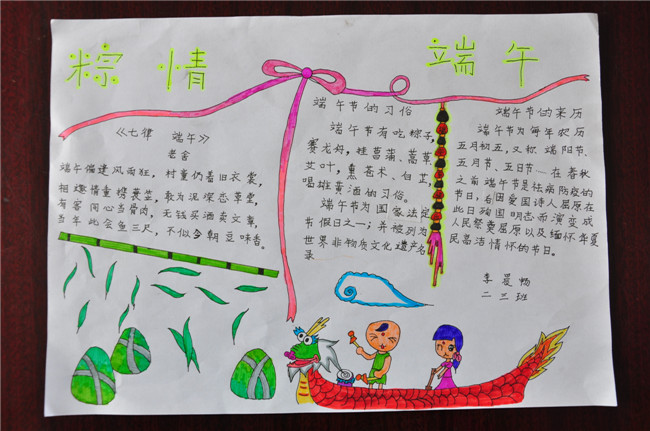 粽 情 端 午
《七律 端午》
老舍
端午偏逢风雨狂，村童仍着旧衣裳，
相邀情重携蓑笠，敢为泥深恋草堂，
有客同心当骨肉，无钱买酒卖文章，
当年此会鱼三尺，不似今朝豆味香。
端午节的习俗
端午节有吃粽子，
赛龙舟，挂菖蒲、蒿草，
艾叶，熏苍术、白芷，
喝雄黄酒的习俗。
端午节为国家法定
节假日之一；并被列为
世界非物质文化遗产名
录
端午节的来历
端午节为每年农历
五月初五，又称端阳节、
五月节、五日节…在春秋
之前端午节是祛病防疫的
节日，后因爱国诗人屈原在
此日殉国明志而演变成
人民祭奠屈原以及缅怀华夏
民高洁情怀的节日。
李 畅
二三班